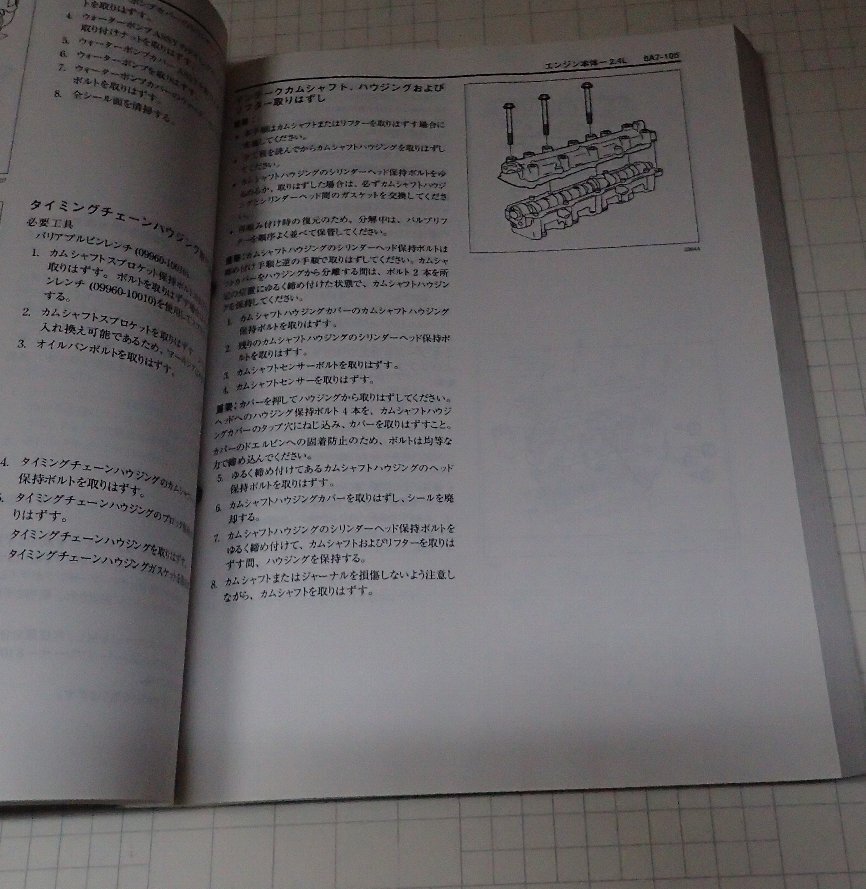 トを取りはずす。
4. ウォーターポンプ
取り付けナットを取りはずす。
5. ウォーターポンプカバー
6. ウォーターポンプを取りはずす。
7. ウォーターポンプカバーの
ボルトを取りはずす。
8. 全シール面を清掃する。
タイミングチェーンハウジング
必要工具
バリアブルピンレンチ (09960-10010)
1. カムシャフトスプロケット保持ボルト
取りはずす。 ボルトを取りはず
ンレンチ (09960-10010)を使用して
する。
2. カムシャフトスプロケットを取りはずす
入れ換え可能であるため、マー
3. オイルパンボルトを取りはずす。
4. タイミングチェーンハウジングのカム
保持ボルトを取りはずす。
タイミングチェーンハウジングのブロック
りはずす。
タイミングチェーンハウジングを取りはずす。
タイミングチェーンハウジングガスケットを
エンジン本体ー2.4L 6A7-105
カムシャフト、ハウジングおよび
フター取りはずし
手順はカムシャフトまたはリフターを取りはずす場合に
してください。
を読んでからカムシャフトハウジングを取りはずし
ください。
カムシャフトハウジングのシリンダーヘッド保持ボルトをゆ
るめるか、取りはずした場合は、必ずカムシャフトハウジ
ングとシリンダーヘッド間のガスケットを交換してくださ
い。
組み付け時の復元のため、分解中は、バルブリフ
ターを順序よく並べて保管してください。
重要：カムシャフトハウジングのシリンダーヘッド保持ボルトは
締め付け手順と逆の手順で取りはずしてください。カムシャ
フトカバーをハウジングから分離する間は、ボルト 2 本を所
定の位置にゆるく締め付けた状態で、カムシャフトハウジン
グを保持してください。
1. カムシャフトハウジングカバーのカムシャフトハウジング
保持ボルトを取りはずす。
2. 残りのカムシャフトハウジングのシリンダーヘッド保持ボ
ルトを取りはずす。
3. カムシャフトセンサーボルトを取りはずす。
4. カムシャフトセンサーを取りはずす。
重要：カバーを押してハウジングから取りはずしてください。
ヘッドへのハウジング保持ボルト 4 本を、カムシャフトハウジ
ングカバーのタップ穴にねじ込み、カバーを取りはずすこと。
カバーのドエルピンへの固着防止のため、ボルトは均等な
力で締め込んでください。
5. ゆるく締め付けてあるカムシャフトハウジングのヘッド
保持ボルトを取りはずす。
6. カムシャフトハウジングカバーを取りはずし、シールを廃
却する。
7. カムシャフトハウジングのシリンダーヘッド保持ボルトを
ゆるく締め付けて、カムシャフトおよびリフターを取りは
ずす間、ハウジングを保持する。
8. カムシャフトまたはジャーナルを損傷しないよう注意し
ながら、カムシャフトを取りはずす。